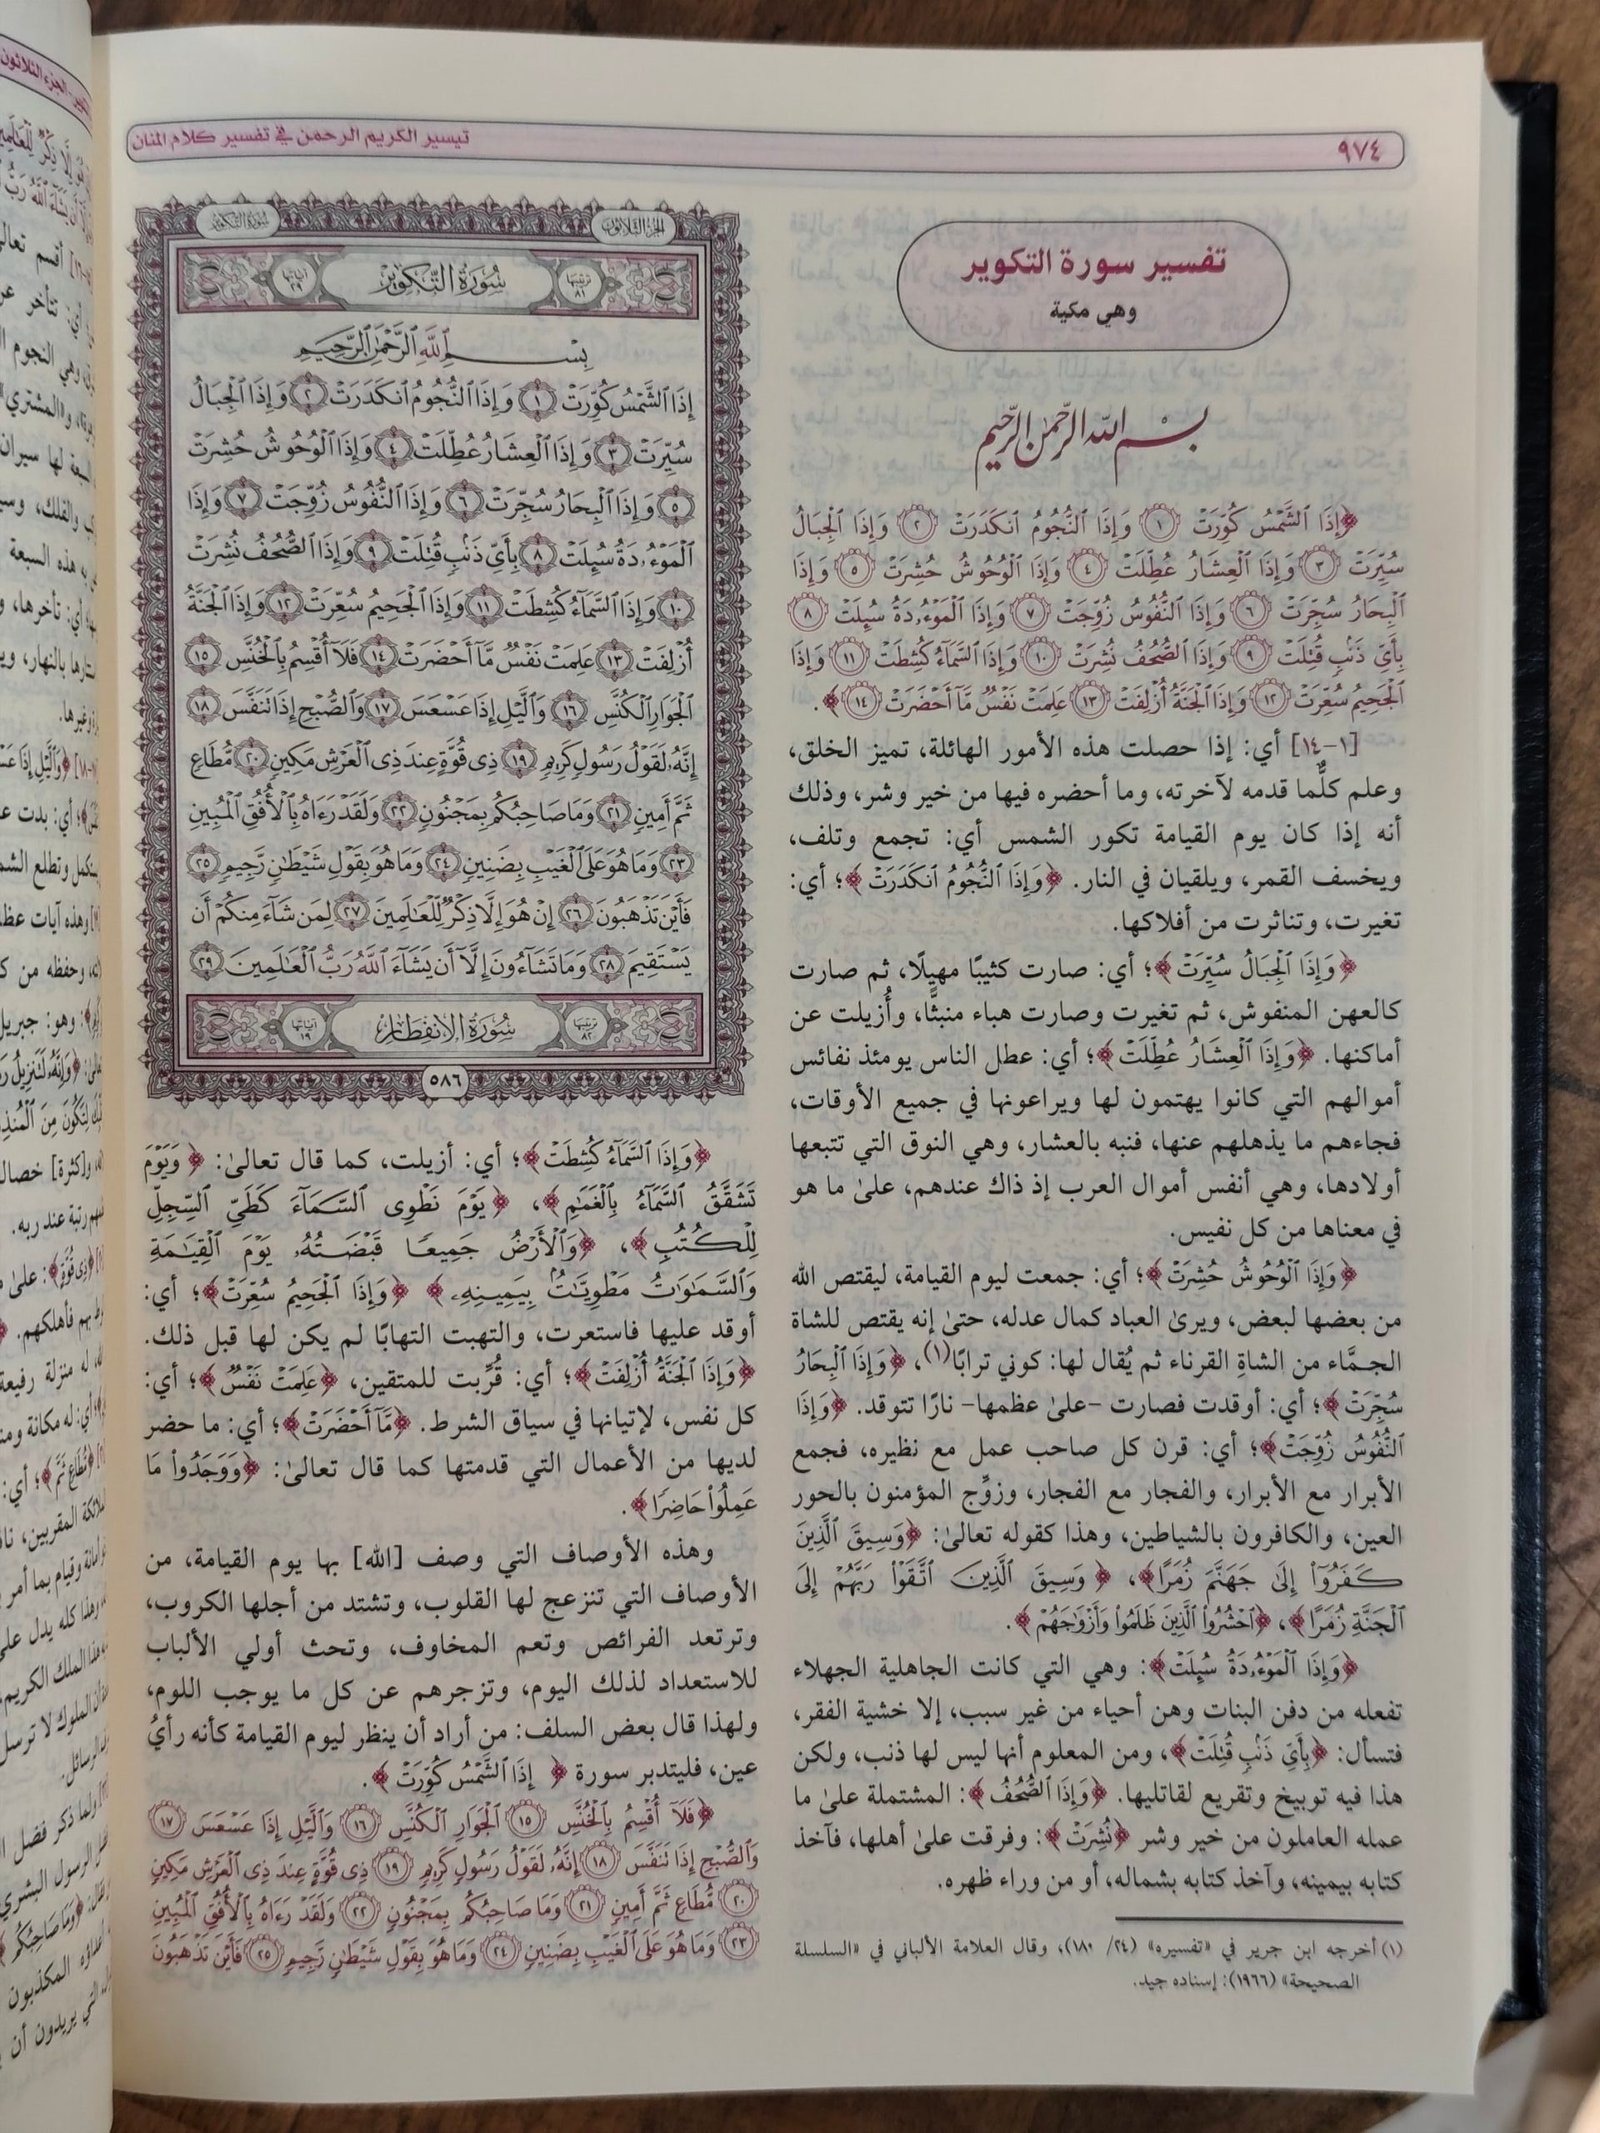 ٩٧٤
تيسير الكريم الرحمن في تفسير كلام المنان
تفسير سورة التكوير
وهي مكية
بسم الله الرحمن الرحيم
﴿إِذَا ٱلشَّمْسُ كُوِّرَتْ ١ وَإِذَا ٱلنُّجُومُ ٱنكَدَرَتْ ٢ وَإِذَا ٱلْجِبَالُ
سُيِّرَتْ ٣ وَإِذَا ٱلْعِشَارُ عُطِّلَتْ ٤ وَإِذَا ٱلْوُحُوشُ حُشِرَتْ ٥ وَإِذَا
ٱلْبِحَارُ سُجِّرَتْ ٦ وَإِذَا ٱلنُّفُوسُ زُوِّجَتْ ٧ وَإِذَا ٱلْمَوْءُۥدَةُ سُئِلَتْ ٨
بِأَىِّ ذَنۢبٍ قُتِلَتْ ٩ وَإِذَا ٱلصُّحُفُ نُشِرَتْ ١٠ وَإِذَا ٱلسَّمَآءُ كُشِطَتْ ١١ وَإِذَا
ٱلْجَحِيمُ سُعِّرَتْ ١٢ وَإِذَا ٱلْجَنَّةُ أُزْلِفَتْ ١٣ عَلِمَتْ نَفْسٌ مَّآ أَحْضَرَتْ ١٤﴾.
[١-١٤] أي: إذا حصلت هذه الأمور الهائلة، تميز الخلق،
وعلم كلٌّما قدمه لآخرته، وما أحضره فيها من خير وشر، وذلك
أنه إذا كان يوم القيامة تكور الشمس أي: تجمع وتلف،
ويخسف القمر، ويلقيان في النار. ﴿وَإِذَا ٱلنُّجُومُ ٱنكَدَرَتْ﴾؛ أي:
تغيرت، وتناثرت من أفلاكها.
﴿وَإِذَا ٱلْجِبَالُ سُيِّرَتْ﴾؛ أي: صارت كثيبًا مهيلًا، ثم صارت
كالعهن المنفوش، ثم تغيرت وصارت هباء منبثًّا، وأُزيلت عن
أماكنها. ﴿وَإِذَا ٱلْعِشَارُ عُطِّلَتْ﴾؛ أي: عطل الناس يومئذ نفائس
أموالهم التي كانوا يهتمون لها ويراعونها في جميع الأوقات،
فجاءهم ما يذهلهم عنها، فنبه بالعشار، وهي النوق التي تتبعها
أولادها، وهي أنفس أموال العرب إذ ذاك عندهم، علىٰ ما هو
في معناها من كل نفيس.
﴿وَإِذَا ٱلْوُحُوشُ حُشِرَتْ﴾؛ أي: جمعت ليوم القيامة، ليقتص الله
من بعضها لبعض، ويرىٰ العباد كمال عدله، حتىٰ إنه يقتص للشاة
الجمَّاء من الشاةِ القرناء ثم يُقال لها: كوني ترابًا(١)، ﴿وَإِذَا ٱلْبِحَارُ
سُجِّرَتْ﴾؛ أي: أوقدت فصارت -علىٰ عظمها- نارًا تتوقد. ﴿وَإِذَا
ٱلنُّفُوسُ زُوِّجَتْ﴾؛ أي: قرن كل صاحب عمل مع نظيره، فجمع
الأبرار مع الأبرار، والفجار مع الفجار، وزوِّج المؤمنون بالحور
العين، والكافرون بالشياطين، وهذا كقوله تعالىٰ: ﴿وَسِيقَ ٱلَّذِينَ
كَفَرُوٓا۟ إِلَىٰ جَهَنَّمَ زُمَرًا﴾، ﴿وَسِيقَ ٱلَّذِينَ ٱتَّقَوْا۟ رَبَّهُمْ إِلَى
ٱلْجَنَّةِ زُمَرًا﴾، ﴿ٱحْشُرُوا۟ ٱلَّذِينَ ظَلَمُوا۟ وَأَزْوَٰجَهُمْ﴾.
﴿وَإِذَا ٱلْمَوْءُۥدَةُ سُئِلَتْ﴾: وهي التي كانت الجاهلية الجهلاء
تفعله من دفن البنات وهن أحياء من غير سبب، إلا خشية الفقر،
فتسأل: ﴿بِأَىِّ ذَنۢبٍ قُتِلَتْ﴾، ومن المعلوم أنها ليس لها ذنب، ولكن
هذا فيه توبيخ وتقريع لقاتليها. ﴿وَإِذَا ٱلصُّحُفُ﴾: المشتملة علىٰ ما
عمله العاملون من خير وشر ﴿نُشِرَتْ﴾: وفرقت علىٰ أهلها، فآخذ
كتابه بيمينه، وآخذ كتابه بشماله، أو من وراء ظهره.
(١) أخرجه ابن جرير في «تفسيره» (٢٤/ ١٨٠)، وقال العلامة الألباني في «السلسلة
الصحيحة» (١٩٦٦): إسناده جيد.
الجزء الثلاثون
سورة التكوير
ترتيبها ٨١
سُورَةُ التَّكْوِير
آياتها ٢٩
بِسْمِ ٱللَّهِ ٱلرَّحْمَٰنِ ٱلرَّحِيمِ
إِذَا ٱلشَّمْسُ كُوِّرَتْ ١ وَإِذَا ٱلنُّجُومُ ٱنكَدَرَتْ ٢ وَإِذَا ٱلْجِبَالُ
سُيِّرَتْ ٣ وَإِذَا ٱلْعِشَارُ عُطِّلَتْ ٤ وَإِذَا ٱلْوُحُوشُ حُشِرَتْ
٥ وَإِذَا ٱلْبِحَارُ سُجِّرَتْ ٦ وَإِذَا ٱلنُّفُوسُ زُوِّجَتْ ٧ وَإِذَا
ٱلْمَوْءُۥدَةُ سُئِلَتْ ٨ بِأَىِّ ذَنۢبٍ قُتِلَتْ ٩ وَإِذَا ٱلصُّحُفُ نُشِرَتْ
١٠ وَإِذَا ٱلسَّمَآءُ كُشِطَتْ ١١ وَإِذَا ٱلْجَحِيمُ سُعِّرَتْ ١٢ وَإِذَا ٱلْجَنَّةُ
أُزْلِفَتْ ١٣ عَلِمَتْ نَفْسٌ مَّآ أَحْضَرَتْ ١٤ فَلَآ أُقْسِمُ بِٱلْخُنَّسِ ١٥
ٱلْجَوَارِ ٱلْكُنَّسِ ١٦ وَٱلَّيْلِ إِذَا عَسْعَسَ ١٧ وَٱلصُّبْحِ إِذَا تَنَفَّسَ ١٨
إِنَّهُۥ لَقَوْلُ رَسُولٍ كَرِيمٍ ١٩ ذِى قُوَّةٍ عِندَ ذِى ٱلْعَرْشِ مَكِينٍ ٢٠ مُّطَاعٍ
ثَمَّ أَمِينٍ ٢١ وَمَا صَاحِبُكُم بِمَجْنُونٍ ٢٢ وَلَقَدْ رَءَاهُ بِٱلْأُفُقِ ٱلْمُبِينِ
٢٣ وَمَا هُوَ عَلَى ٱلْغَيْبِ بِضَنِينٍ ٢٤ وَمَا هُوَ بِقَوْلِ شَيْطَٰنٍ رَّجِيمٍ ٢٥
فَأَيْنَ تَذْهَبُونَ ٢٦ إِنْ هُوَ إِلَّا ذِكْرٌ لِّلْعَٰلَمِينَ ٢٧ لِمَن شَآءَ مِنكُمْ أَن
يَسْتَقِيمَ ٢٨ وَمَا تَشَآءُونَ إِلَّآ أَن يَشَآءَ ٱللَّهُ رَبُّ ٱلْعَٰلَمِينَ ٢٩
ترتيبها ٨٢
سُورَةُ الِانفِطَار
آياتها ١٩
٥٨٦
﴿وَإِذَا ٱلسَّمَآءُ كُشِطَتْ﴾؛ أي: أزيلت، كما قال تعالىٰ: ﴿وَيَوْمَ
تَشَقَّقُ ٱلسَّمَآءُ بِٱلْغَمَٰمِ﴾، ﴿يَوْمَ نَطْوِى ٱلسَّمَآءَ كَطَىِّ ٱلسِّجِلِّ
لِلْكُتُبِ﴾، ﴿وَٱلْأَرْضُ جَمِيعًا قَبْضَتُهُۥ يَوْمَ ٱلْقِيَٰمَةِ
وَٱلسَّمَٰوَٰتُ مَطْوِيَّٰتٌۢ بِيَمِينِهِۦ﴾ ﴿وَإِذَا ٱلْجَحِيمُ سُعِّرَتْ﴾؛ أي:
أوقد عليها فاستعرت، والتهبت التهابًا لم يكن لها قبل ذلك.
﴿وَإِذَا ٱلْجَنَّةُ أُزْلِفَتْ﴾؛ أي: قُرِّبت للمتقين، ﴿عَلِمَتْ نَفْسٌ﴾؛ أي:
كل نفس، لإتيانها في سياق الشرط. ﴿مَّآ أَحْضَرَتْ﴾؛ أي: ما حضر
لديها من الأعمال التي قدمتها كما قال تعالىٰ: ﴿وَوَجَدُوا۟ مَا
عَمِلُوا۟ حَاضِرًا﴾.
وهذه الأوصاف التي وصف [الله] بها يوم القيامة، من
الأوصاف التي تنزعج لها القلوب، وتشتد من أجلها الكروب،
وترتعد الفرائص وتعم المخاوف، وتحث أولي الألباب
للاستعداد لذلك اليوم، وتزجرهم عن كل ما يوجب اللوم،
ولهذا قال بعض السلف: من أراد أن ينظر ليوم القيامة كأنه رأيُ
عين، فليتدبر سورة ﴿إِذَا ٱلشَّمْسُ كُوِّرَتْ﴾.
﴿فَلَآ أُقْسِمُ بِٱلْخُنَّسِ ١٥ ٱلْجَوَارِ ٱلْكُنَّسِ ١٦ وَٱلَّيْلِ إِذَا عَسْعَسَ ١٧
وَٱلصُّبْحِ إِذَا تَنَفَّسَ ١٨ إِنَّهُۥ لَقَوْلُ رَسُولٍ كَرِيمٍ ١٩ ذِى قُوَّةٍ عِندَ ذِى ٱلْعَرْشِ مَكِينٍ
٢٠ مُّطَاعٍ ثَمَّ أَمِينٍ ٢١ وَمَا صَاحِبُكُم بِمَجْنُونٍ ٢٢ وَلَقَدْ رَءَاهُ بِٱلْأُفُقِ ٱلْمُبِينِ
٢٣ وَمَا هُوَ عَلَى ٱلْغَيْبِ بِضَنِينٍ ٢٤ وَمَا هُوَ بِقَوْلِ شَيْطَٰنٍ رَّجِيمٍ ٢٥ فَأَيْنَ تَذْهَبُونَ